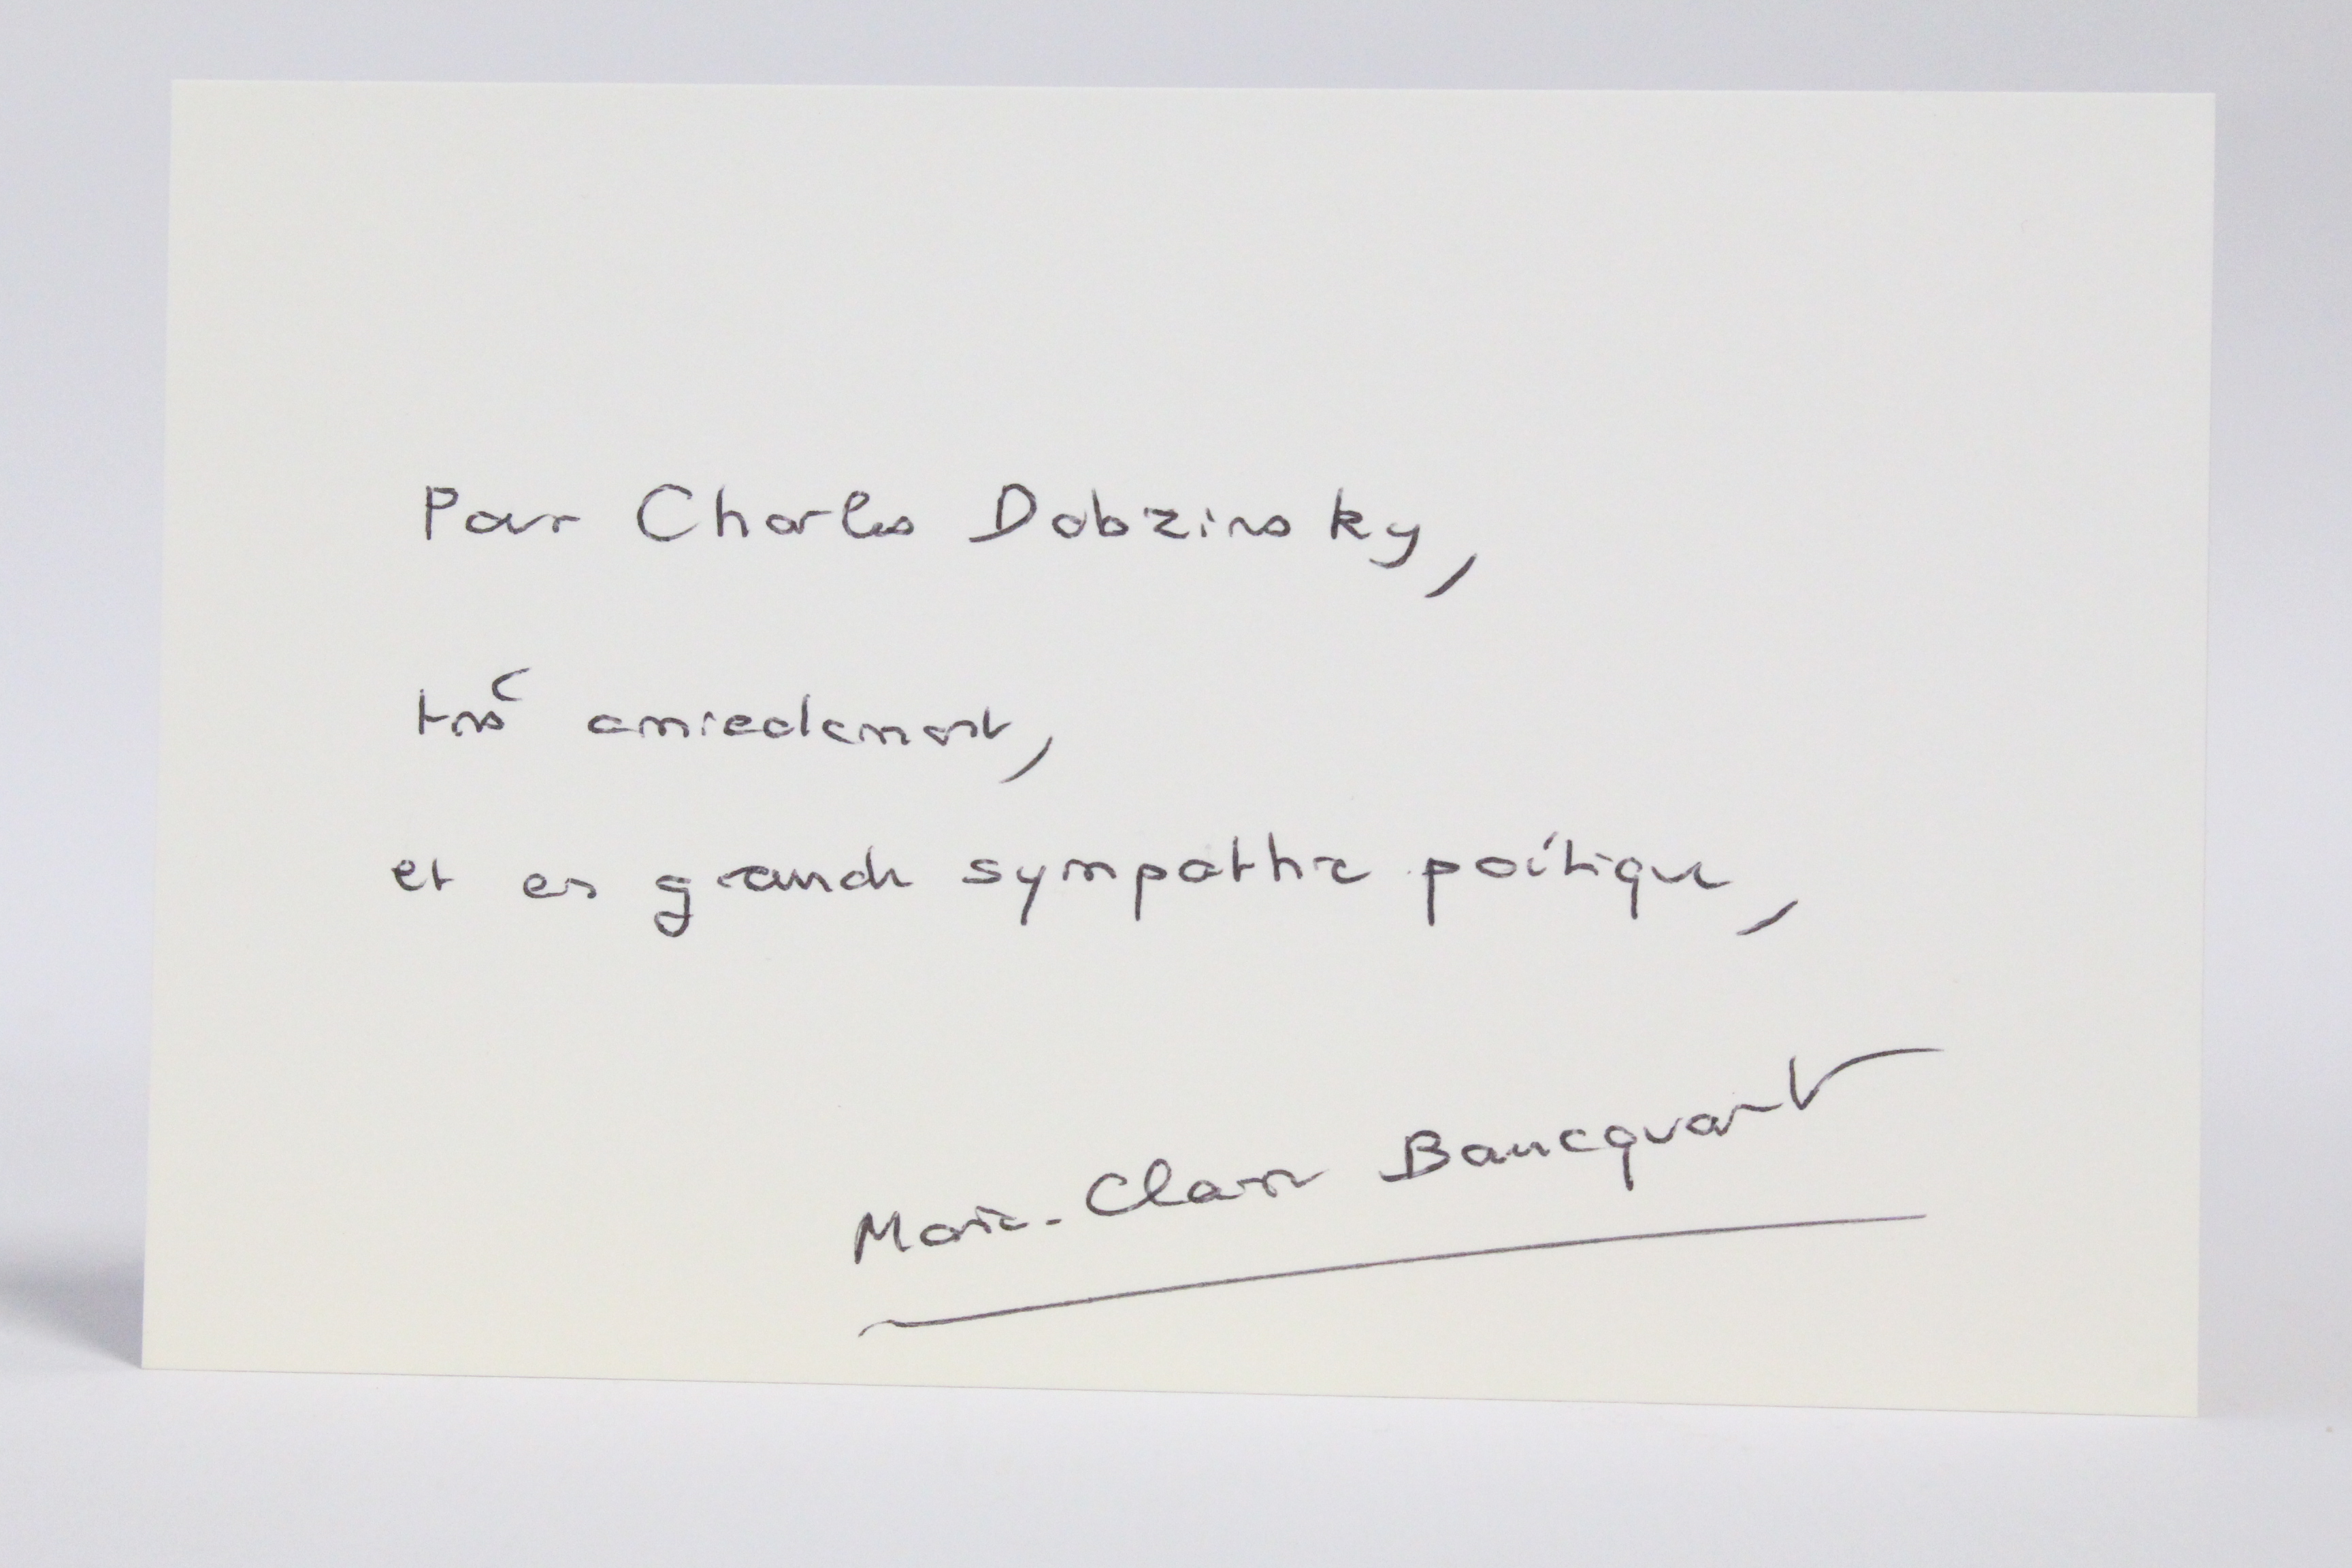 Pour Charles Dobzinsky,
très amicalement,
et en grande sympathie poétique,
Marie-Claire Bancquart